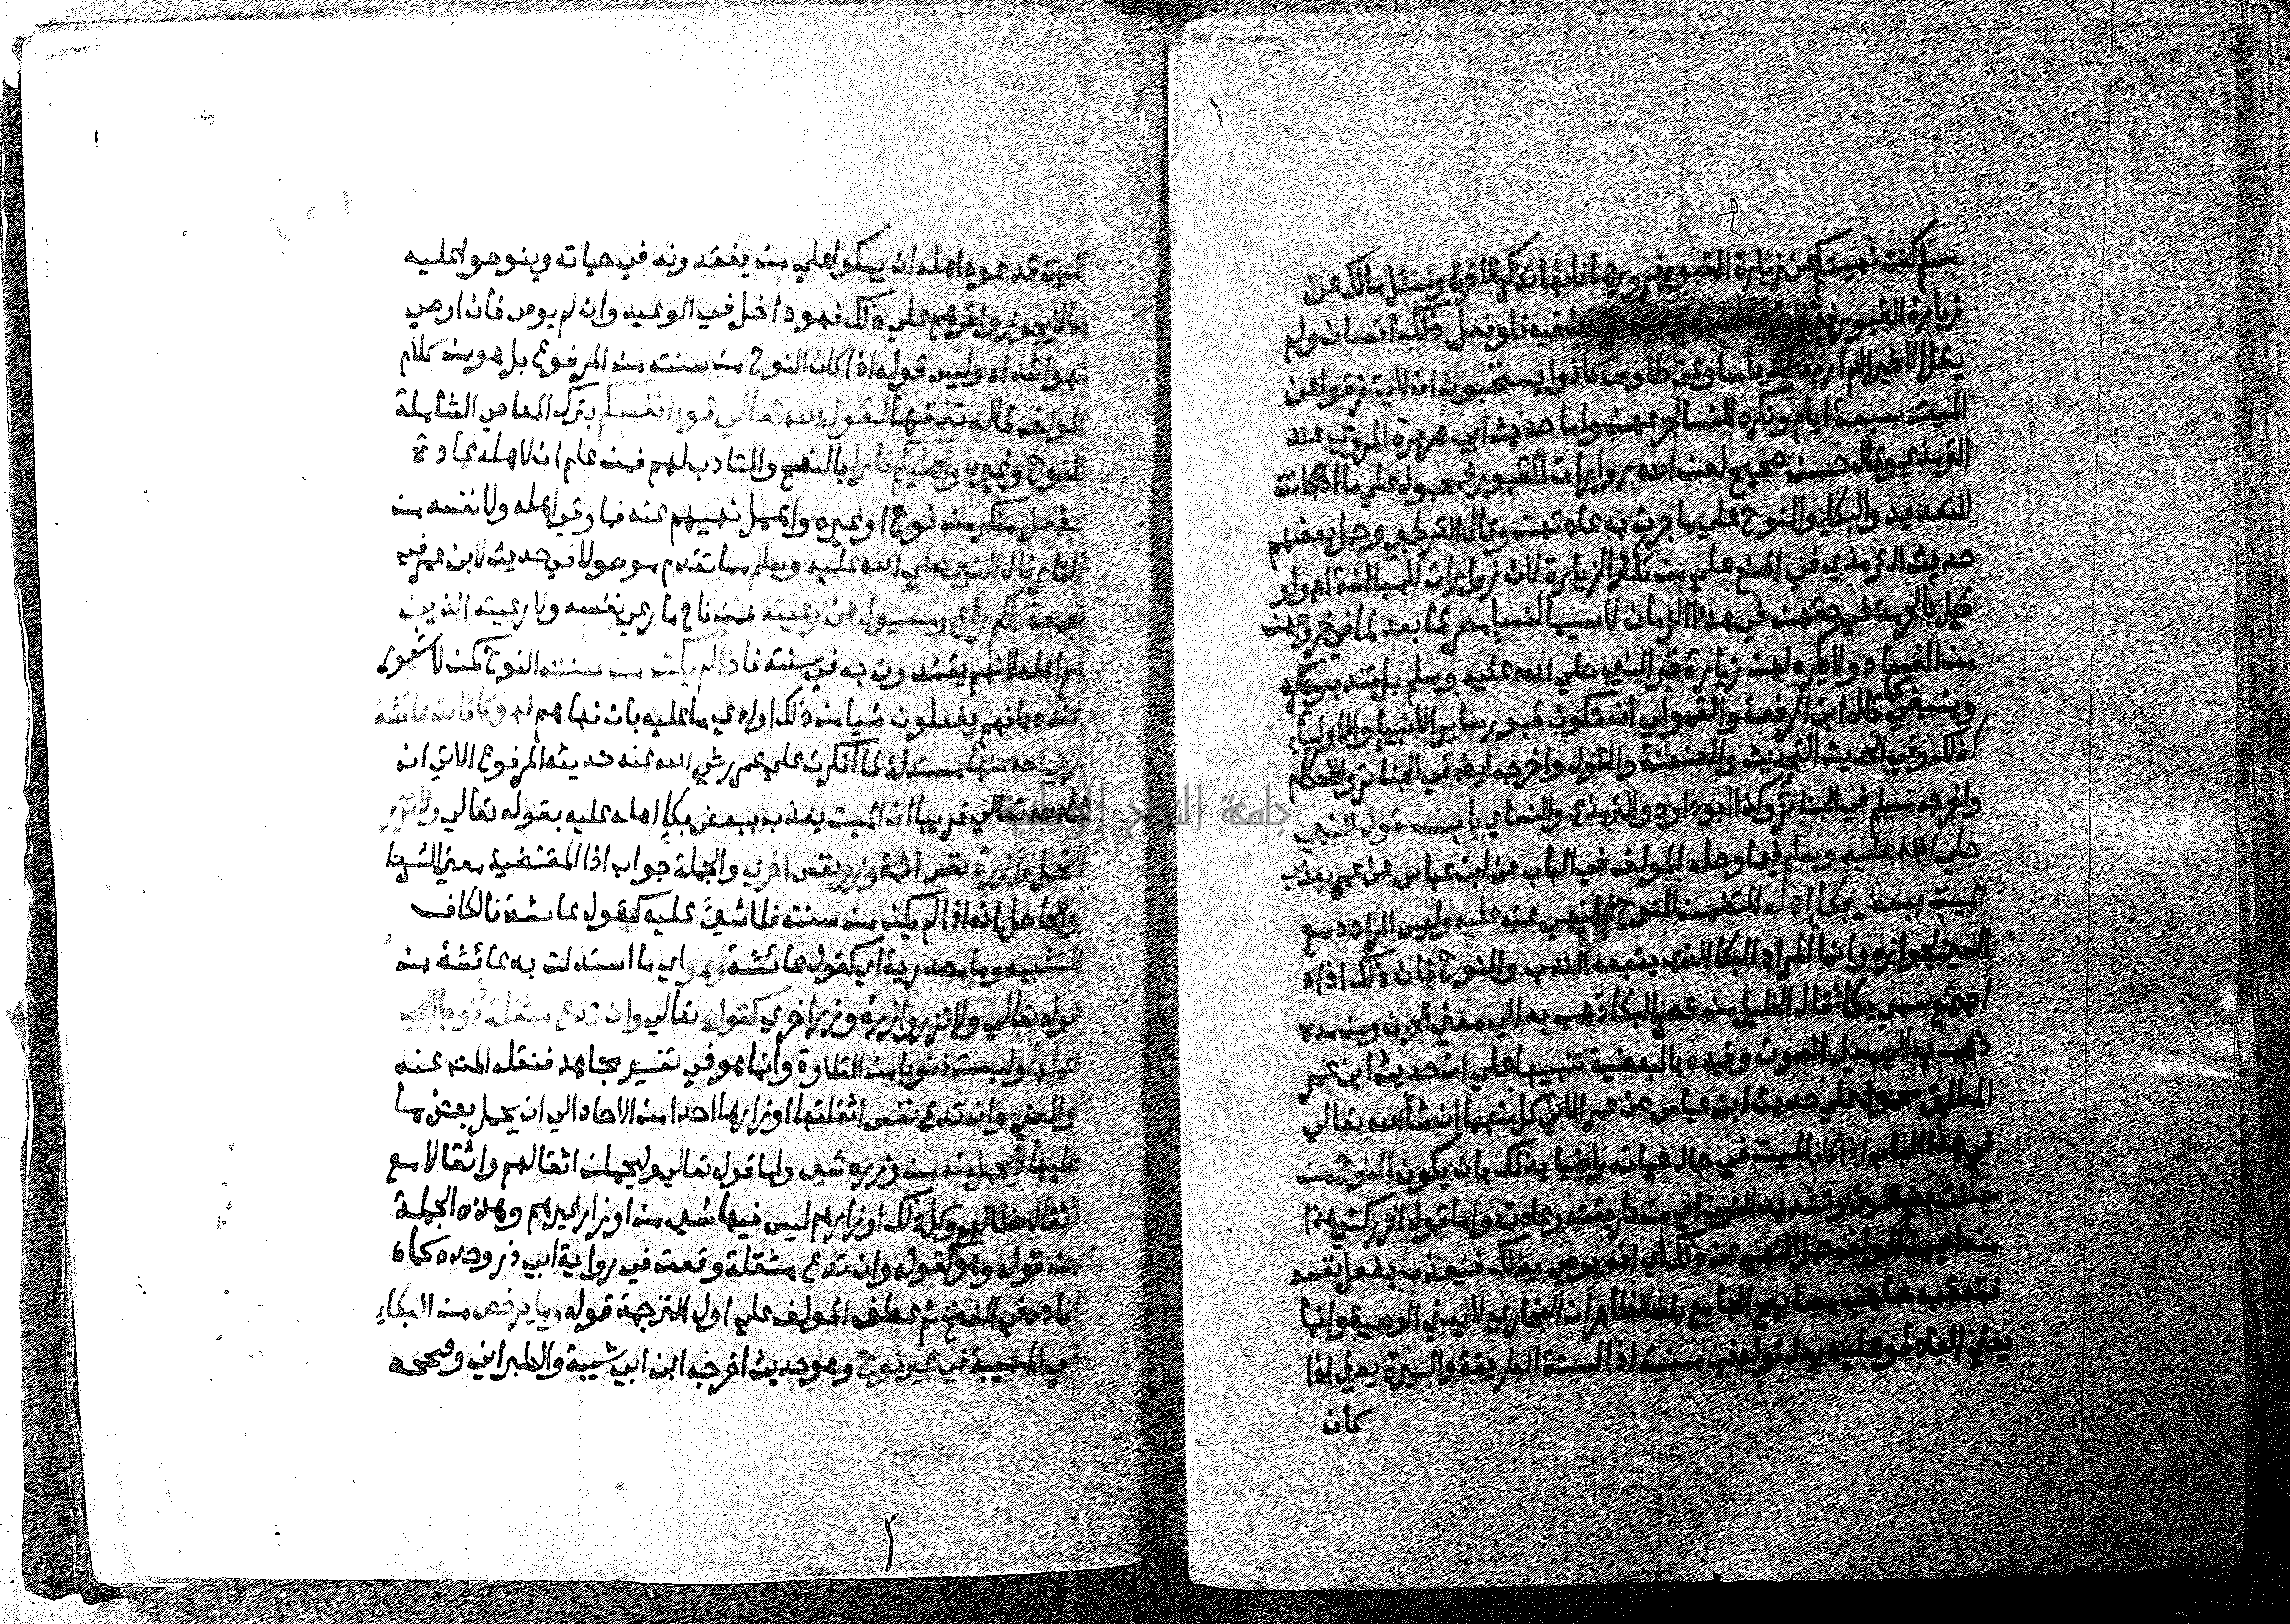 مسلم كنت نهيتكم عن زيارة القبور فزوروها فانها تذكر الاخرة وسئل مالك عن
زيارة القبور فقال فيه فلو فعل ذلك انسان ولم
يقل الا خيرا لم ار بذلك باسا وعن طاوس كانوا يستحبون ان لا يتفرقوا عن
الميت سبعة ايام وتكره للنسا لجزعهن واما حديث ابي هريرة المروي عند
الترمذي وقال حسن صحيح لعن الله زوارات القبور فمحمول على ما اذا كانت
للتعديد والبكاء والنوح على ما جرت به عادتهن وقال القرطبي وحمل بعضهم
حديث الترمذي في المنع على من تكثر الزيارة لان زوارات للمبالغة اه ولو
قيل بالحرمة في حقهن في هذا الزمان لا سيما نسا مصر لما بعد لما في خروجهن
من الفساد ولا يكره لهن زيارة قبر النبي صلى الله عليه وسلم بل تندب
وينبغي كما قال ابن الرفعة والقمولي ان تكون قبور ساير الانبيا والاوليا
كذلك وفي الحديث التحديث والعنعنة والقول واخرجه ايضا في الجنائز والاحكام
واخرجه مسلم في الجنائز وكذا ابو داود والترمذي والنساي باب قول النبي
صلى الله عليه وسلم فيما وصله المولف في الباب عن ابن عباس عن عمر يعذب
الميت ببعض بكاء اهله المتضمن للنوح المنهي عنه عليه وليس المراد دمع
العين لجوازه وانما المراد البكا الذي يتبعه الندب والنوح فان ذلك اذا
اجتمع سمي بكا قال الخليل من قصر البكا ذهب به الى معنى الحزن ومن مده
ذهب به الى معنى الصوت وقيده بالبعضية تنبيها على ان حديث ابن عمر
المطلق محمول على حديث ابن عباس عن عمر الاتي كل منهما ان شا الله تعالى
في هذا الباب اذا كان الميت في حال حياته راضيا بذلك بان يكون النوح من
سنته بضم السين وتشديد النون اي من طريقته وعادته واما قول الزركشي هذا
منه اي من المولف حمل النهي عن ذلك اي انه يوصي بذلك فيعذب بفعل نفسه
فتعقبه صاحب مصابيح الجامع بان الظاهر ان البخاري لا يعني الوصية وانما
يعني العادة وعليه يدل قوله في سنته اذ السنة الطريقة والسيرة يعني اذا
كان
الميت قد عود اهله ان يبكوا على من يفقدونه في حياته وينوحوا عليه
بما لا يجوز واقرهم على ذلك فهو داخل في الوعيد وان لم يوص فان اوصى
فهو اشد اه وليس قوله اذا كان النوح من سنته من المرفوع بل هو من كلام
المولف قاله تفقها لقول الله تعالى قوا انفسكم بترك المعاصي الشاملة
للنوح وغيره واهليكم نارا بالنصح والتاديب لهم فمن علم ان لاهله عادة
بفعل منكر من نوح او غيره واهمل نهيهم عنه فما وقى اهله ولا نفسه من
النار قال النبي صلى الله عليه وسلم مما تقدم موصولا في حديث لابن عمر في
الجمعة كلكم راع ومسيول عن رعيته فمن ناح ما رعى نفسه ولا رعيته الذين
هم اهله لانهم يقتدون به في سنته فاذا لم يكن من سنته النوح كمن لا شعور
عنده بانهم يفعلون شيا من ذلك او ادى ما عليه بان نهاهم فهو كما قالت عائشة
رضي الله عنها مستدلة لما انكرت على عمر رضي الله عنه حديثه المرفوع الاتي ان
شا الله تعالى قريبا ان الميت يعذب ببعض بكاء اهله عليه بقوله تعالى ولا تزر
لا تحمل وازرة نفس اثمة وزر نفس اخرى والجملة جواب اذا المتضمنة معنى الشرط
والحاصل انه اذا لم يكن من سنته فلا شيء عليه كقول عائشة فالكاف
للتشبيه وما مصدرية اي كقول عائشة وهو اي ما استدلت به عائشة من
قوله تعالى ولا تزر وازرة وزر اخرى كقوله تعالى وان تدع مثقلة ذنوبا الى
حملها وليست ذنوبا من التلاوة وانما هو في تفسير مجاهد فنقله المص عنه
والمعنى وان تدع نفس اثقلتها اوزارها احدا من الاحاد الى ان يحمل بعض ما
عليها لا يحمل منه من وزره شي واما قوله تعالى وليحملن اثقالهم واثقالا مع
اثقالهم وكل ذلك اوزارهم ليس فيها شي من اوزار غيرهم وهذه الجملة
من قوله وهو كقوله وان تدع مثقلة وقعت في رواية ابي ذر وحده كما
افاده في الفتح ثم عطف المولف على اول الترجمة قوله وما يرخص من البكاء
في المصيبة في غير نوح وهو حديث اخرجه ابن ابي شيبة والطبراني وصححه
جامعة النجاح الوطنية